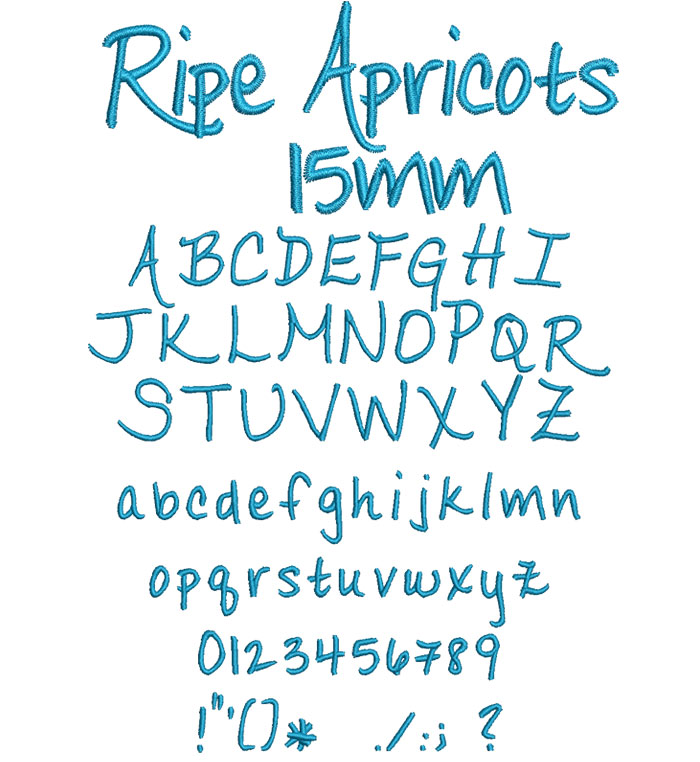 Ripe Apricots
15mm
ABCDEFGHI
JKLMNOPQR
STUVWXYZ
abcdefghijklmn
opqrstuvwxyz
0123456789
!"'()* ./:; ?